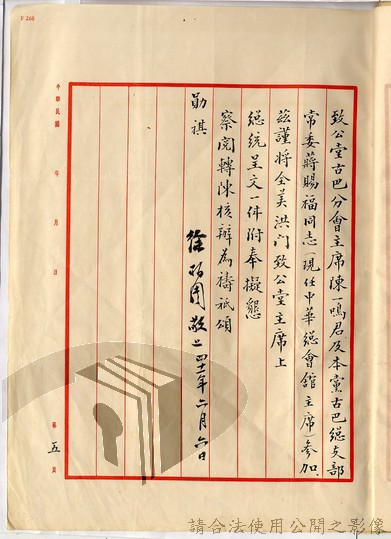 F 266
致公堂古巴分會主席陳一鳴君及本黨古巴總支部
常委蔣賜福同志(現任中華總會舘主席)參加、
茲謹將全美洪门致公堂主席上
總統呈文一件附奉擬懇
察閱轉陳核辦為禱祗頌
勛祺
敬上四十一年六月六日
中華民國 年 月 日
第五頁
請合法使用公開之影像